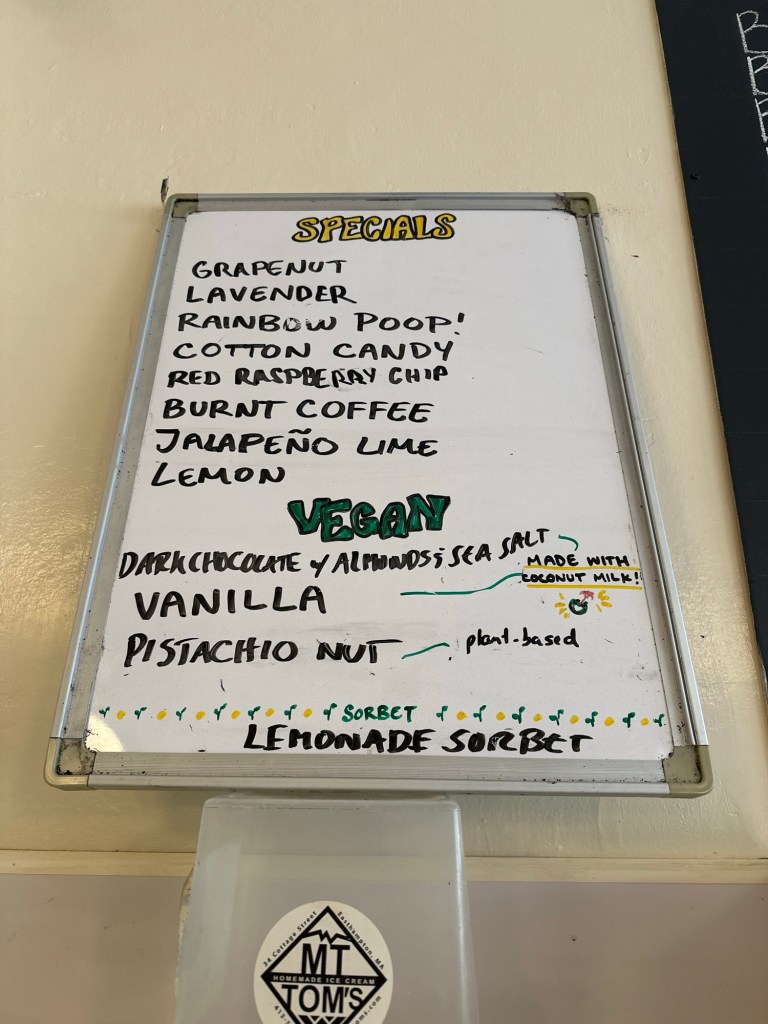 SPECIALS
GRAPENUT
LAVENDER
RAINBOW POOP!
COTTON CANDY
RED RASPBERRY CHIP
BURNT COFFEE
JALAPEÑO LIME
LEMON
VEGAN
DARK CHOCOLATE y ALMONDS & SEA SALT
MADE WITH
COCONUT MILK!
VANILLA
PISTACHIO NUT
plant-based
SORBET
LEMONADE SORBET
34 Cottage Street
Easthampton, MA
MT
HOMEMADE ICE CREAM
TOM'S